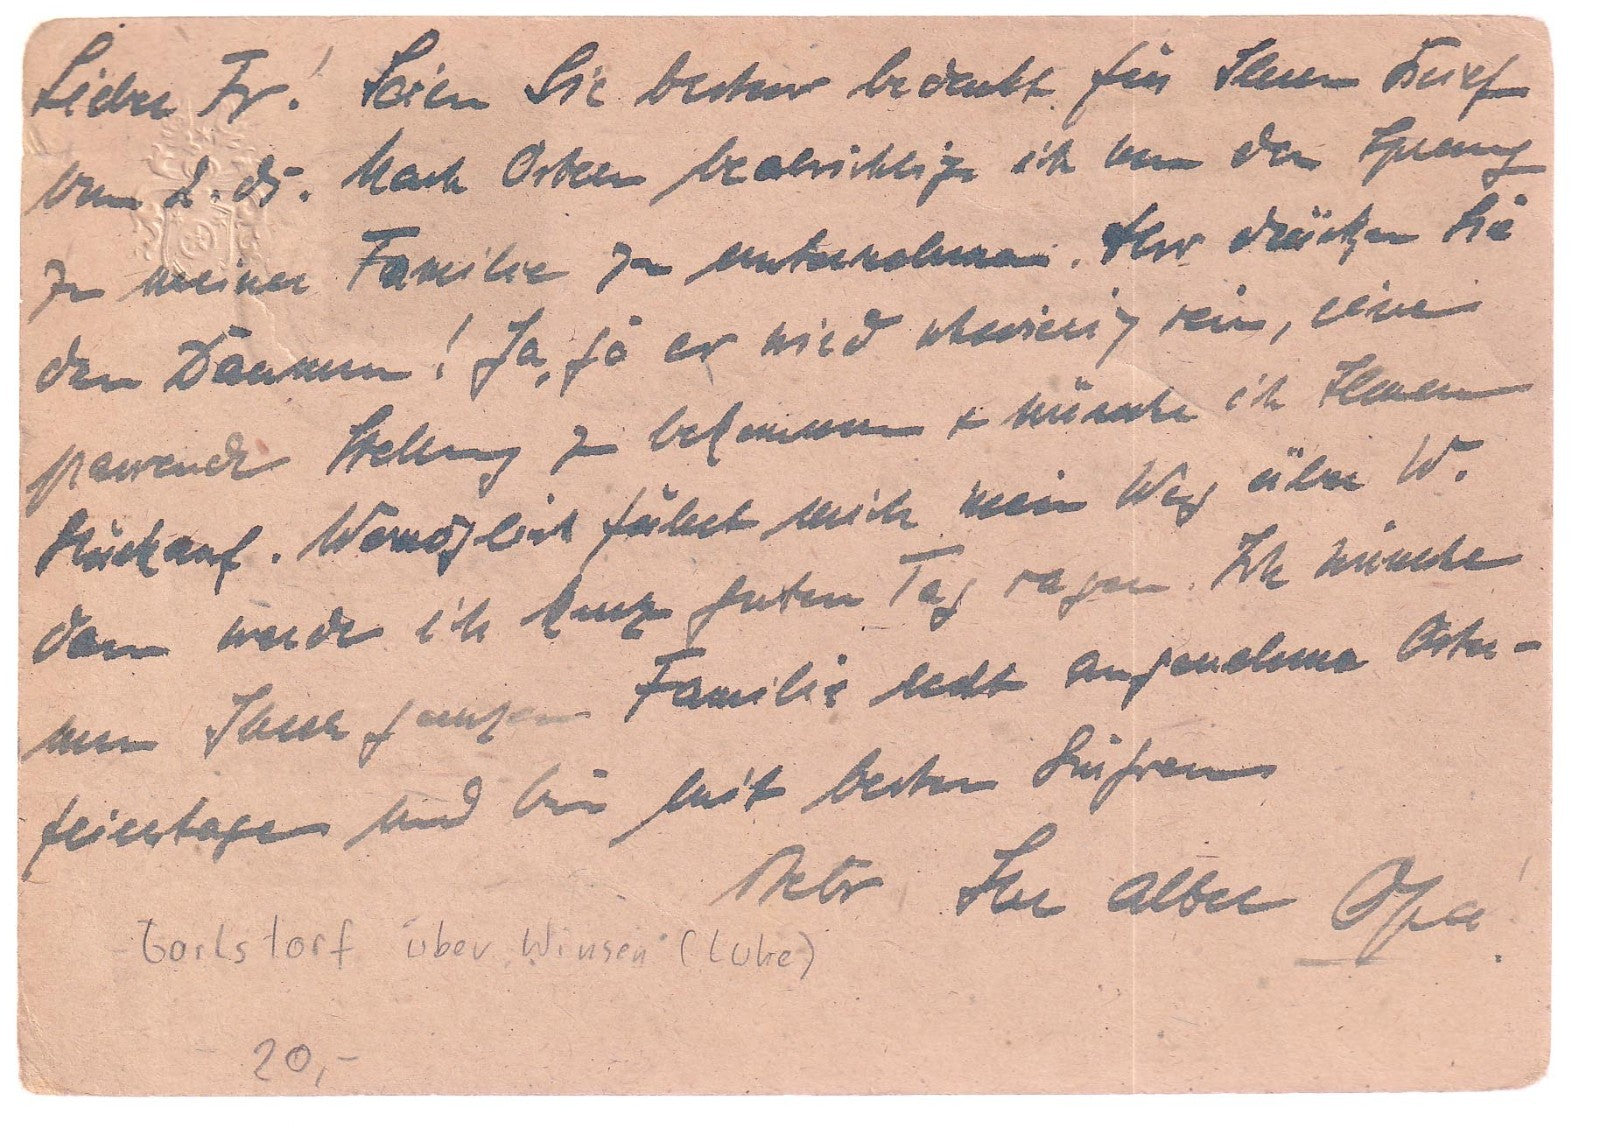 Lieber Fr.! Seien Sie bestens bedankt für Ihren Brief
vom 2. ds. Nach Ostern beabsichtige ich nun den Sprung
zu meiner Familie zu unternehmen. Also drücken Sie
den Daumen! Ja, ja er wird schwierig sein, eine
passende Stellung zu bekommen + wünsche ich Ihnen
Glückauf. Womöglich führt mich mein Weg über W.
dann werde ich kurz guten Tag sagen. Ich wünsche
nun Ihrer ganzen Familie recht angenehme Oster-
feiertage und bin mit besten Grüssen
stets Ihr alter Opa!
Goilstorf über Winsen (Luhe)
20,-